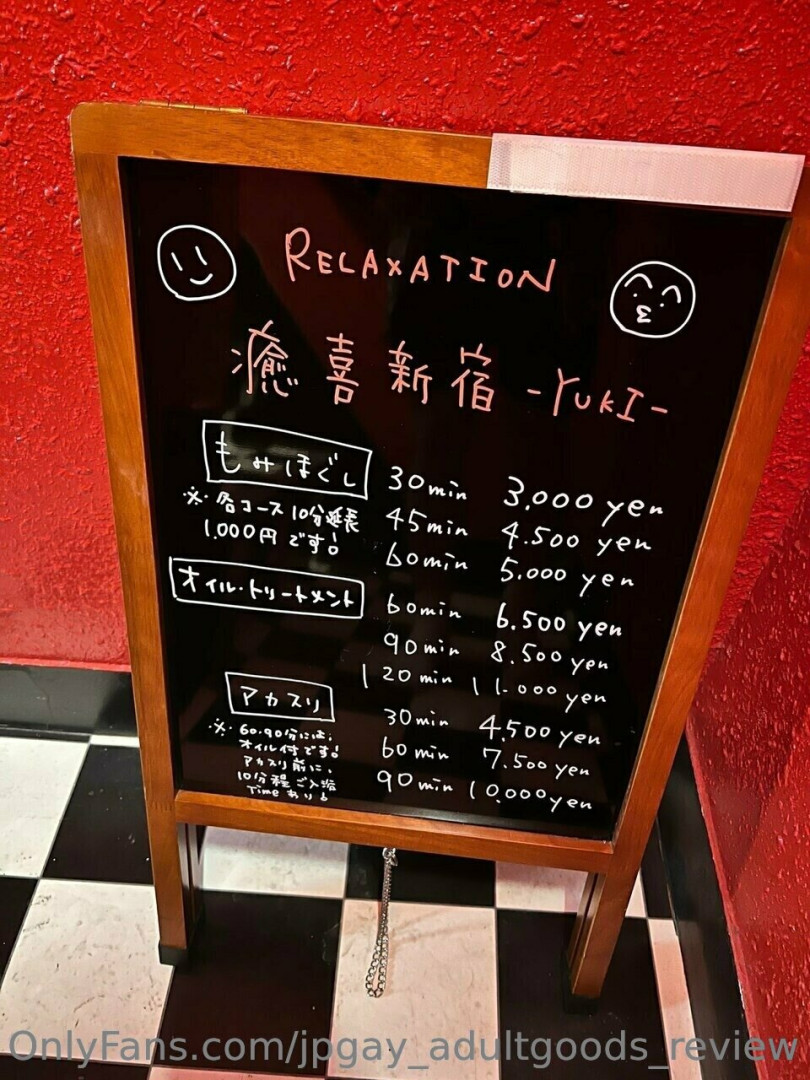 RELAXATION
癒喜新宿 -YUKI-
もみほぐし
※各コース10分延長
1,000円です!
30min 3,000 yen
45min 4.500 yen
60min 5,000 yen
オイル・トリートメント
60min 6,500 yen
90min 8,500 yen
120min 11.000 yen
アカスリ
※60・90分には、
オイル付です!
アカスリ前に、
10分程ご入浴
Timeあり!
30min 4,500 yen
60min 7,500 yen
90min 10,000 yen
OnlyFans.com/jpgay_adultgoods_review